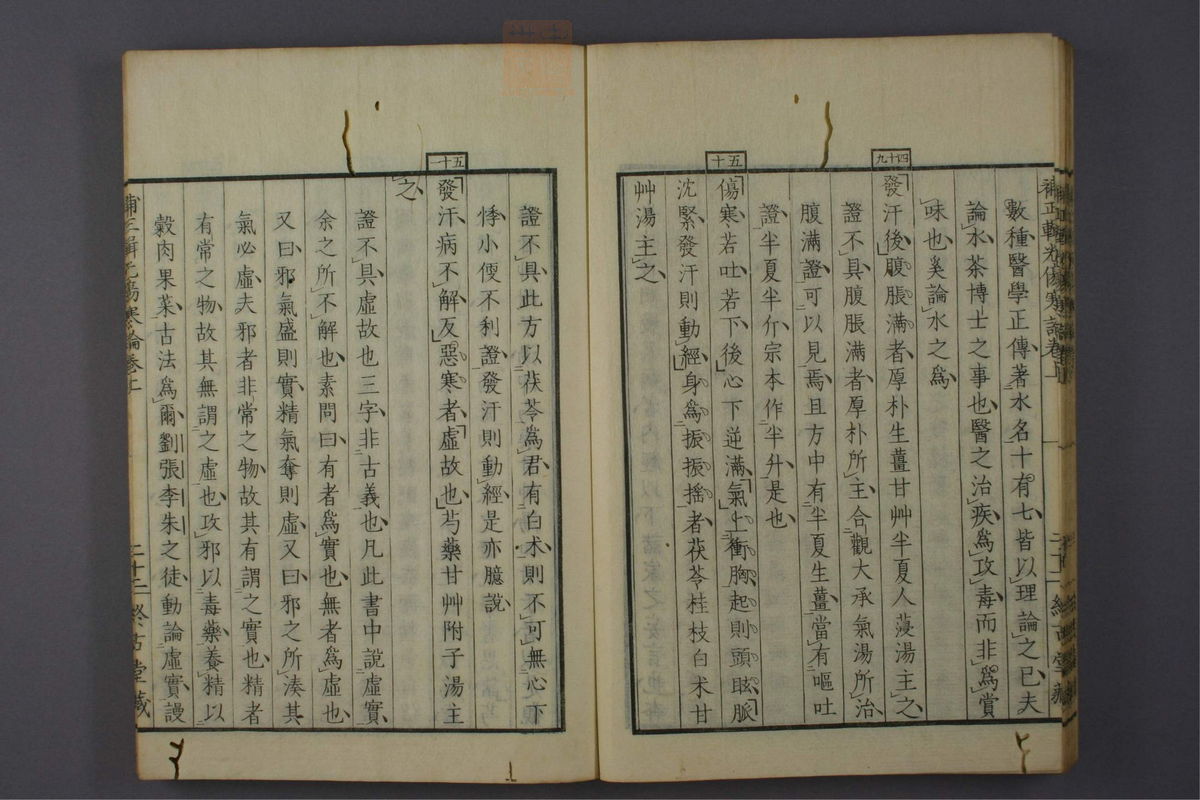 補正輯光傷寒論卷上
數種醫學正傳著水名十有七皆以理論之已夫
論水茶博士之事也醫之治疾爲攻毒而非爲賞
味也奚論水之爲
四十九
發汗後腹脹滿者厚朴生薑甘艸半夏人薓湯主之
證不具腹脹滿者厚朴所主合觀大承氣湯所治
腹滿證可以見焉且方中有半夏生薑當有嘔吐
證半夏半介宗本作半升是也
五十
傷寒若吐若下後心下逆滿氣上衝胸起則頭眩脈
沈緊發汗則動經身爲振振搖者茯苓桂枝白术甘
艸湯主之
證不具此方以茯苓爲君有白术則不可無心下
悸小便不利證發汗則動經是亦臆說
五十一
發汗病不解反惡寒者虛故也芍藥甘艸附子湯主
之
證不具虛故也三字非古義也凡此書中說虛實
余之所不解也素問曰有者爲實也無者爲虛也
又曰邪氣盛則實精氣奪則虛又曰邪之所湊其
氣必虛夫邪者非常之物故其有謂之實也精者
有常之物故其無謂之虛也攻邪以毒藥養精以
穀肉果菜古法爲爾劉張李朱之徒動論虛實謾
補正輯光傷寒論卷上
二十二
堂藏